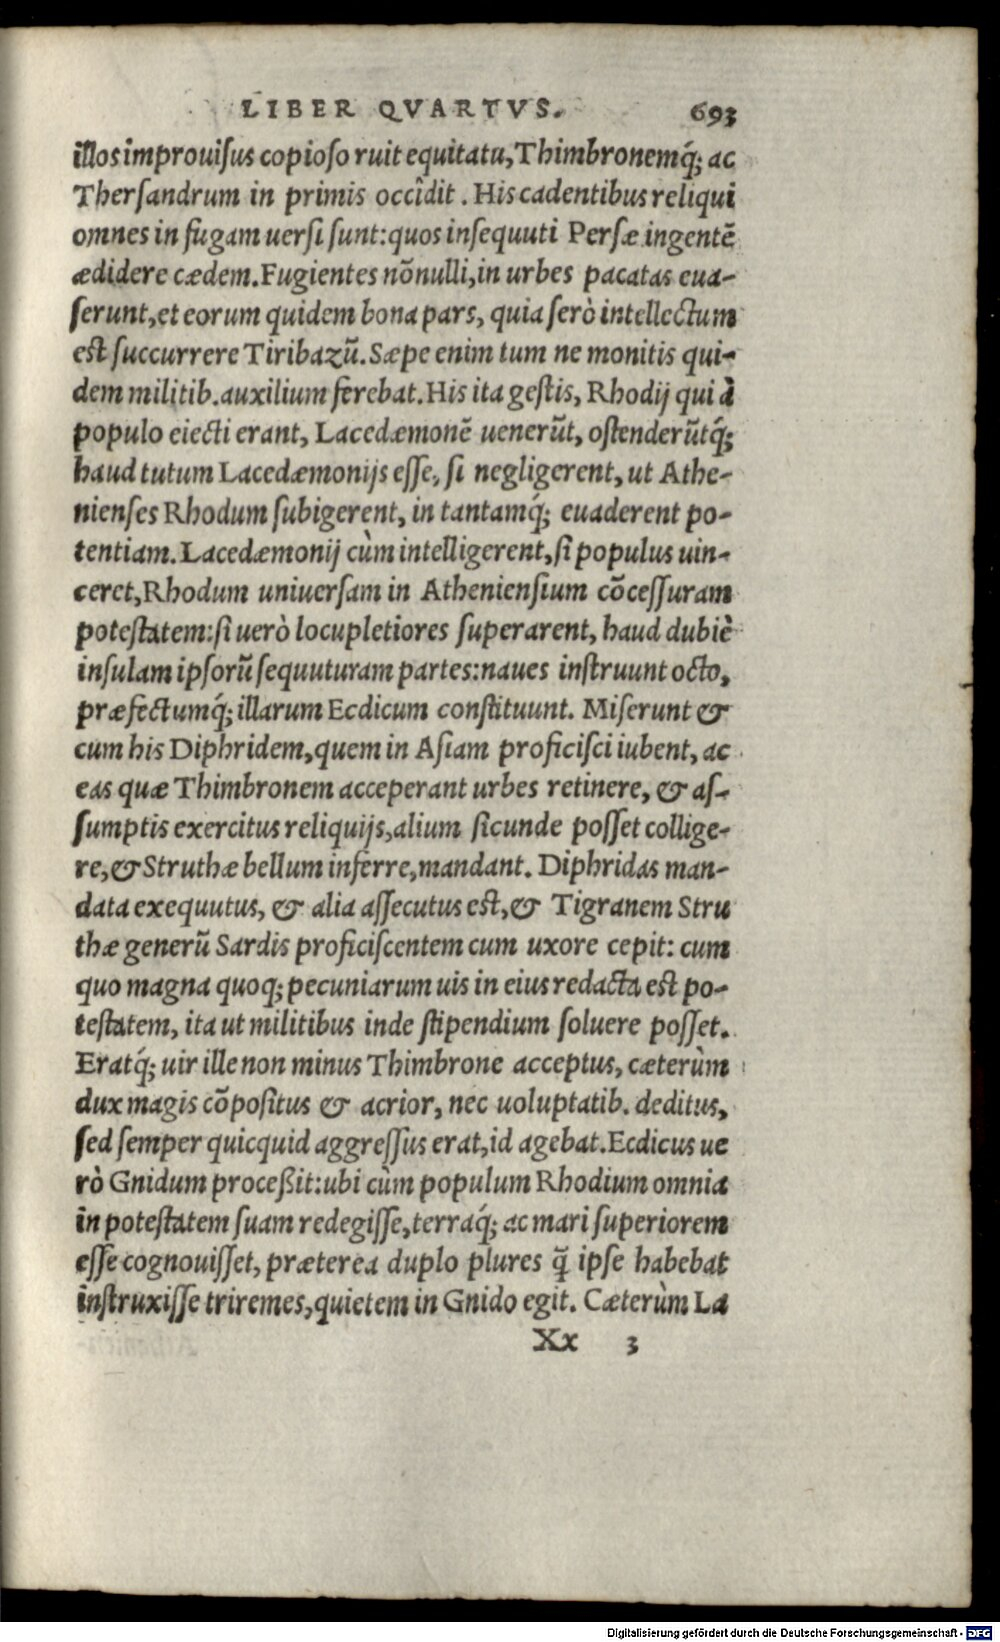 LIBER QVARTVS. 693
illos improuiſus copioſo ruit equitatu, Thimbronemq́; ac
Therſandrum in primis occîdit. His cadentibus reliqui
omnes in fugam uerſi ſunt: quos inſequuti Perſæ ingentẽ
ædidere cædem. Fugientes nõnulli, in urbes pacatas eua-
ſerunt, et eorum quidem bona pars, quia ſerò intellectum
eſt ſuccurrere Tiribazũ. Sæpe enim tum ne monitis qui-
dem militib. auxilium ferebat. His ita geſtis, Rhodij qui à
populo eiecti erant, Lacedæmonẽ uenerũt, oſtenderũtq́;
haud tutum Lacedæmonijs eſſe, ſi negligerent, ut Athe-
nienſes Rhodum ſubigerent, in tantamq́; euaderent po-
tentiam. Lacedæmonij cùm intelligerent, ſi populus uin-
ceret, Rhodum uniuerſam in Athenienſium cõceſſuram
poteſtatem: ſi uerò locupletiores ſuperarent, haud dubiè
inſulam ipſorũ ſequuturam partes: naues inſtruunt octo,
præfectumq́; illarum Ecdicum conſtituunt. Miſerunt &
cum his Diphridem, quem in Aſiam proficiſci iubent, ac
eas quæ Thimbronem acceperant urbes retinere, & aſ-
ſumptis exercitus reliquijs, alium ſicunde poſſet collige-
re, & Struthæ bellum inferre, mandant. Diphridas man-
data exequutus, & alia aſſecutus eſt, & Tigranem Stru
thæ generũ Sardis proficiſcentem cum uxore cepit: cum
quo magna quoq; pecuniarum uis in eius redacta eſt po-
teſtatem, ita ut militibus inde ſtipendium ſoluere poſſet.
Eratq́; uir ille non minus Thimbrone acceptus, cæterùm
dux magis cõpoſitus & acrior, nec uoluptatib. deditus,
ſed ſemper quicquid aggreſſus erat, id agebat. Ecdicus ue
rò Gnidum proceßit: ubi cùm populum Rhodium omnia
in poteſtatem ſuam redegiſſe, terraq́; ac mari ſuperiorem
eſſe cognouiſſet, præterea duplo plures q̃ ipſe habebat
inſtruxiſſe triremes, quietem in Gnido egit. Cæterùm La
Xx 3
Digitalisierung gefördert durch die Deutsche Forschungsgemeinschaft - DFG